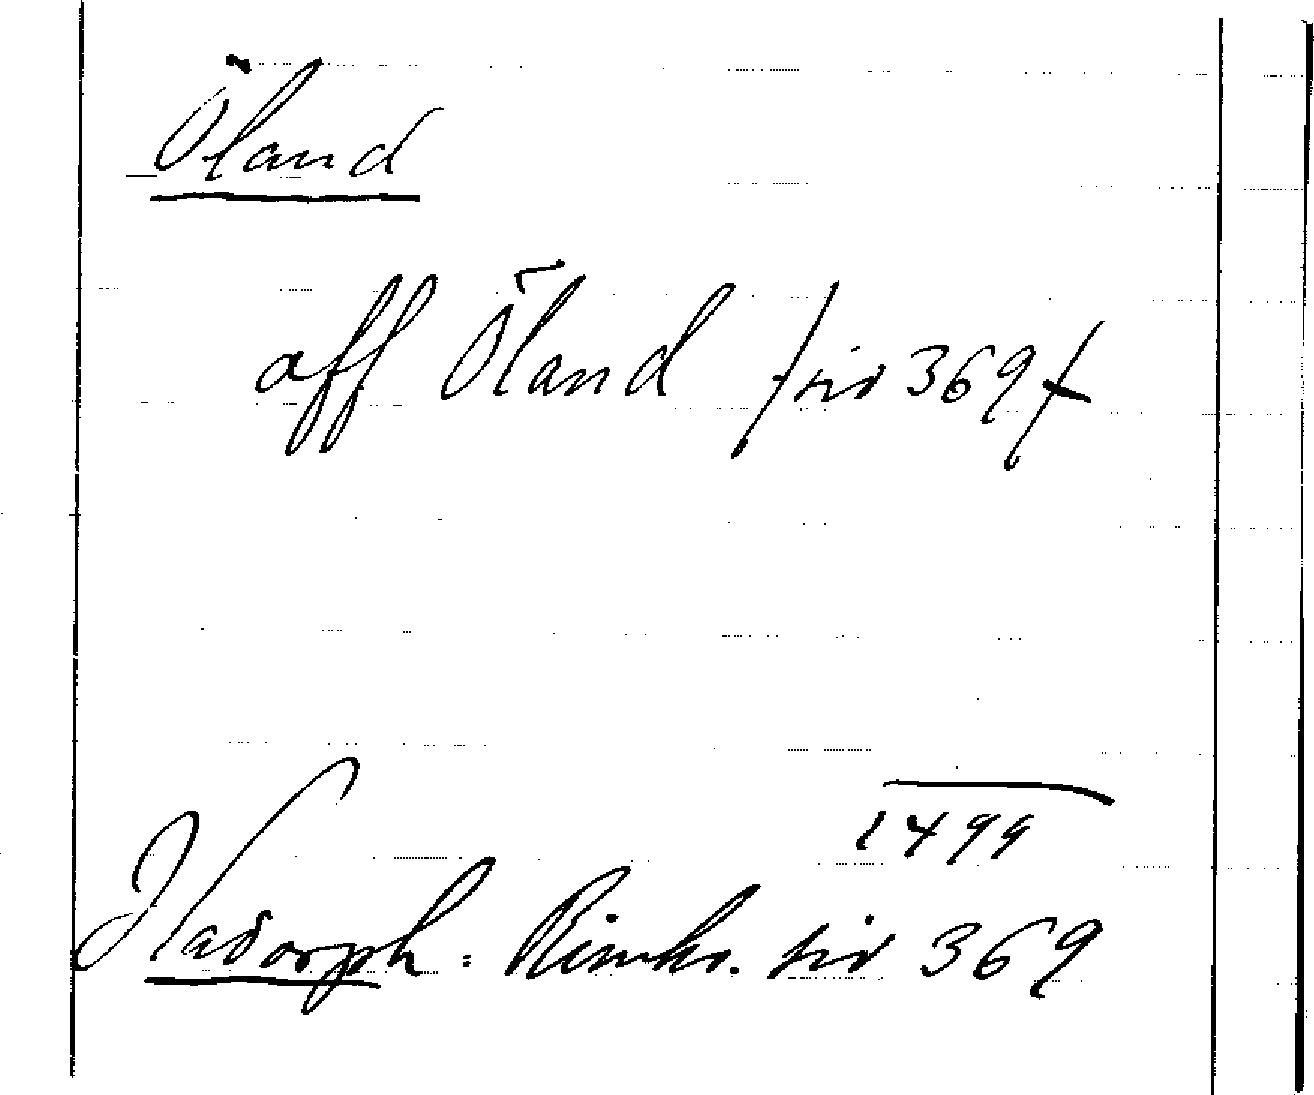 Öland
aff Öland /sid 369/
1499
Hadorph: Rimkr. sid 369